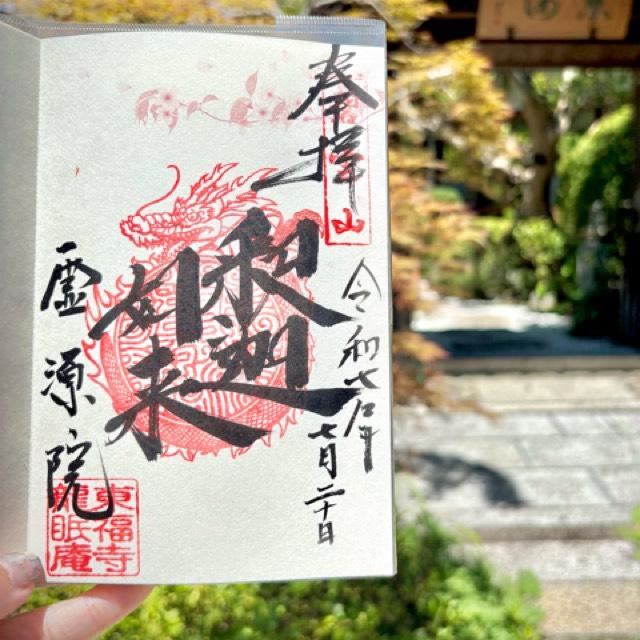 奉拝
令和七年七月二十日
釈迦
如来
霊源院
東福寺
眠庵